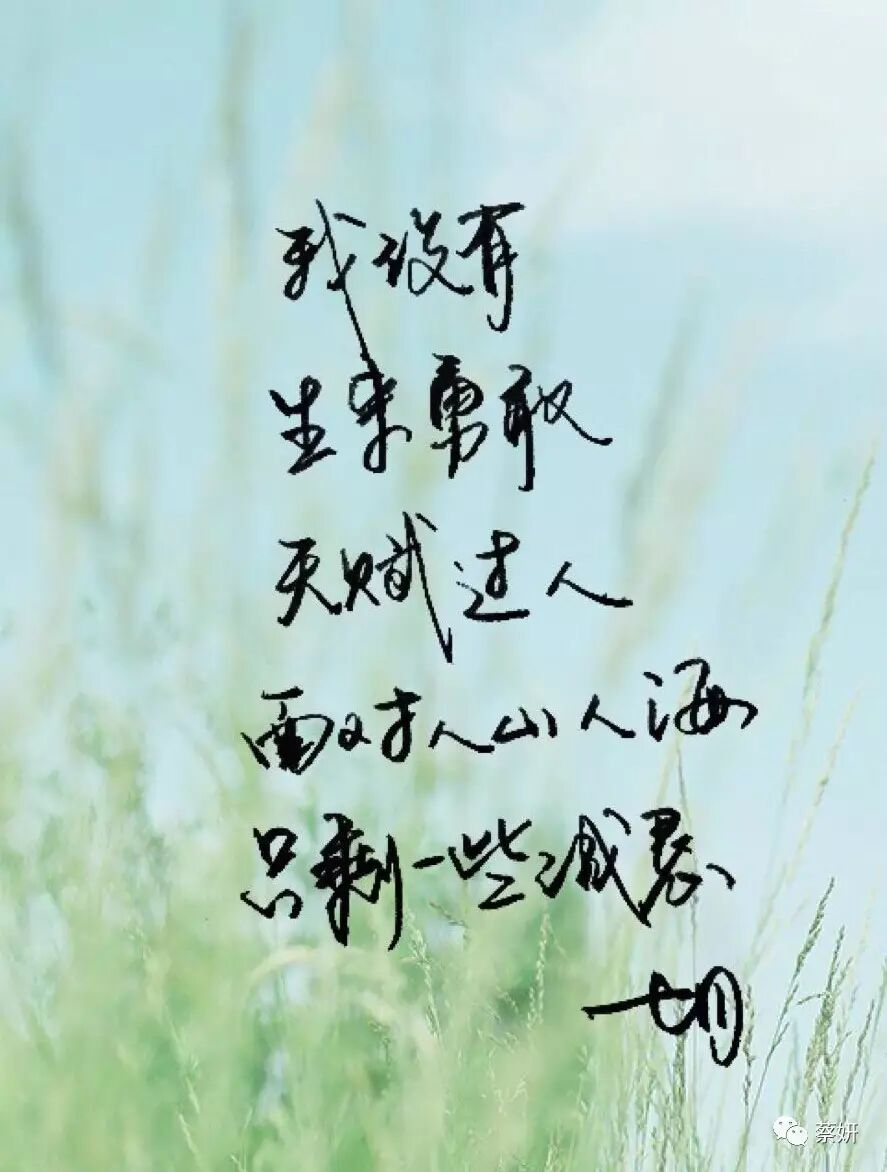 我没有
生来勇敢
天赋过人
面对人山人海
只剩一些诚恳
七月
蔡妍